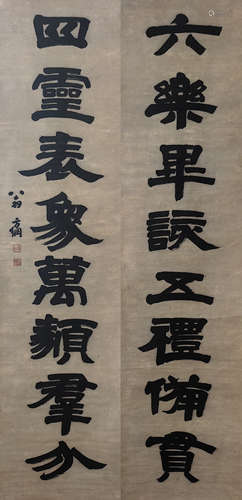 六樂畢該五禮備貫
四靈表象萬類羣分
翁方綱